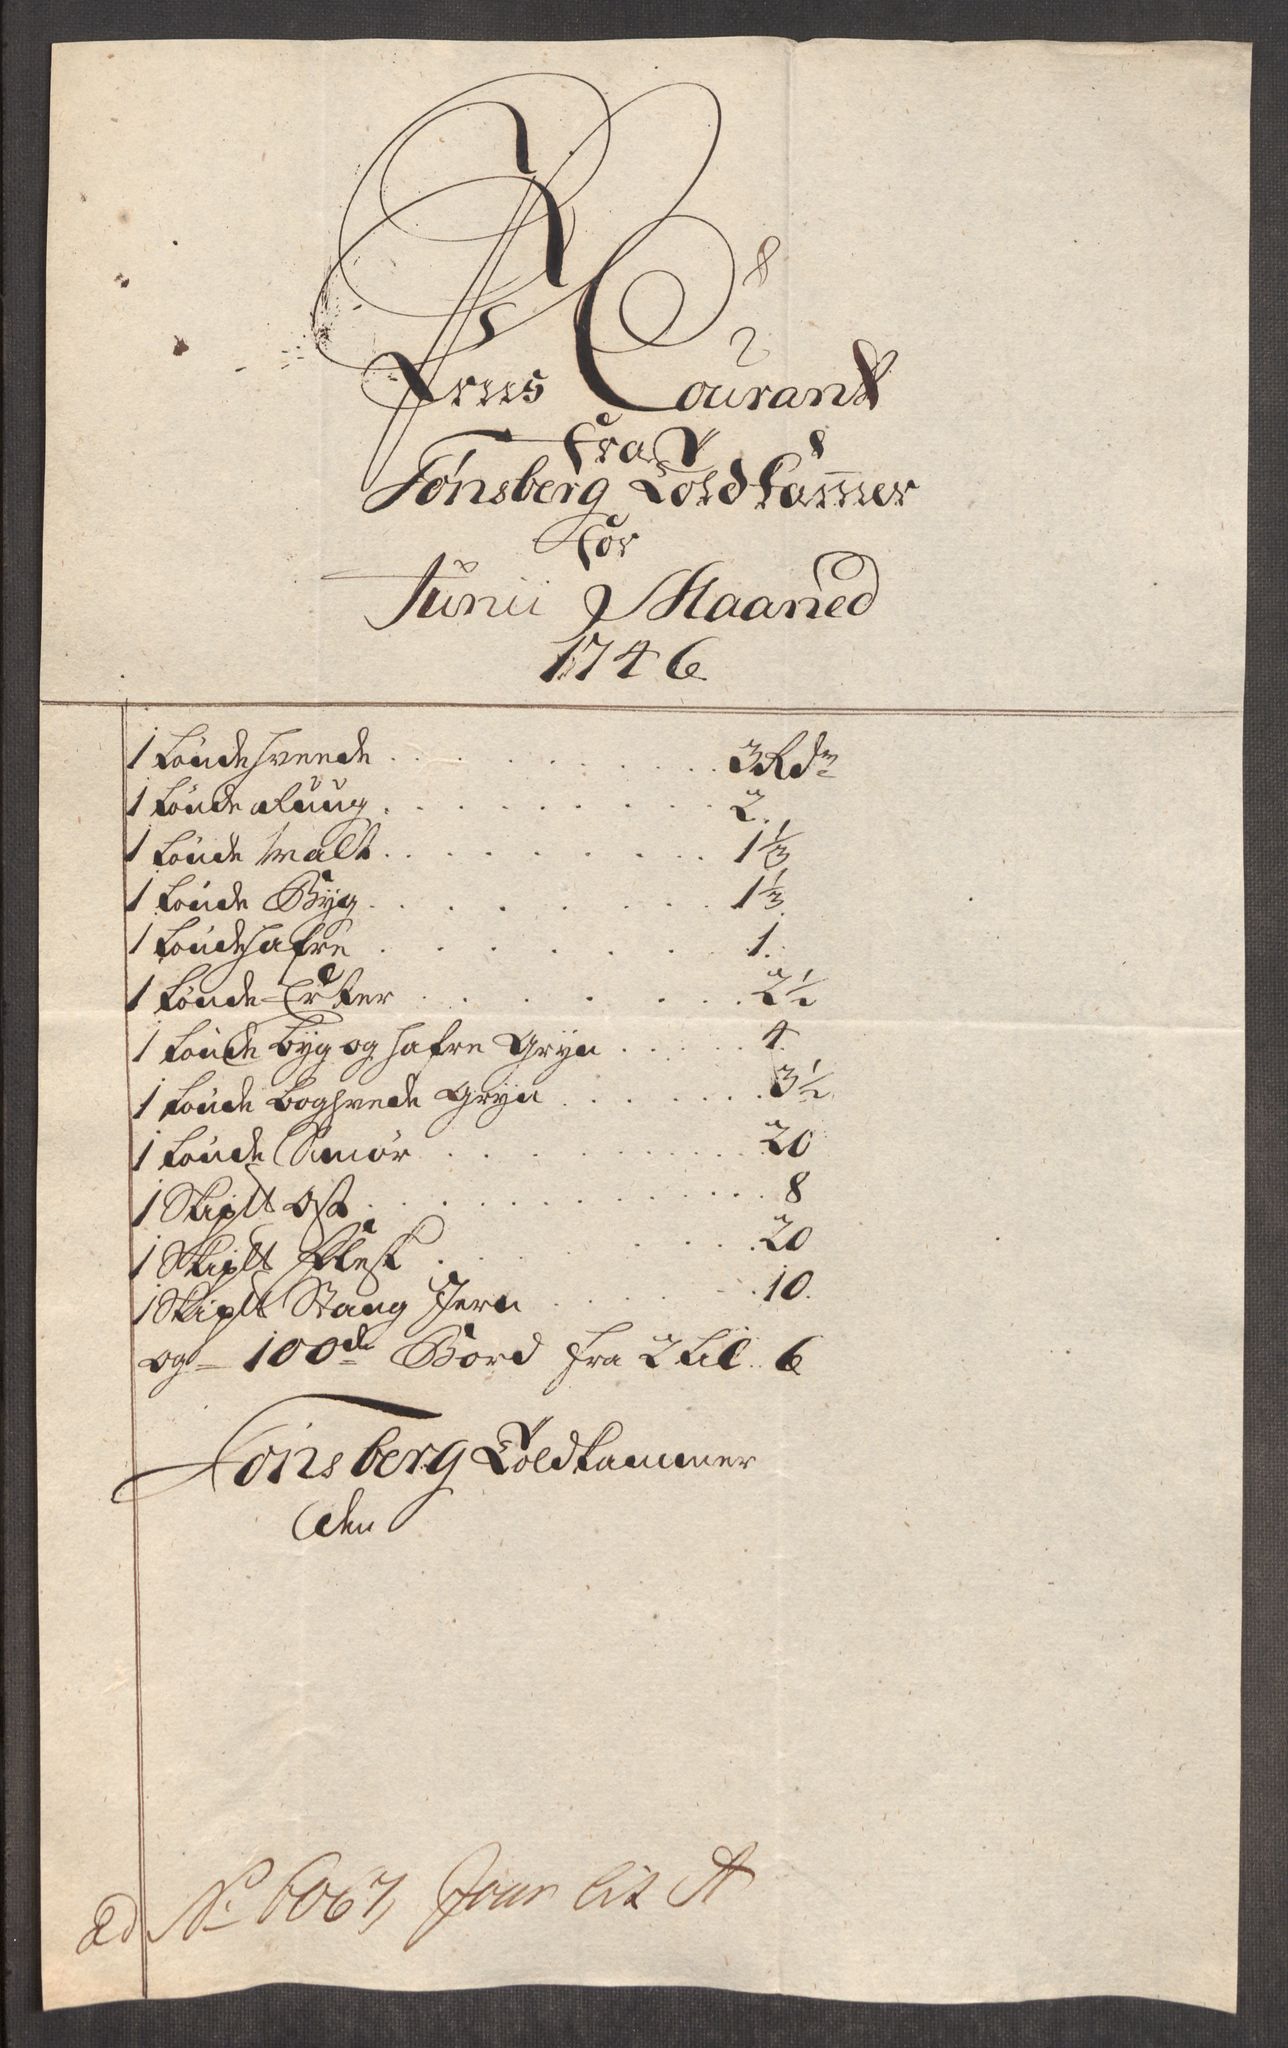 Priis Courant
fra
Tønsberg Toldkam̄er
for
Junii Maaned
1746
1 Tønde Hveede . . . 3 Rdr
1 Tønde Ruug . . . 2.
1 Tønde Malt . . . 1 1/3
1 Tønde Byg . . . 1 1/3
1 Tønde Hafre . . . 1.
1 Tønde Erter . . . 2 1/2
1 Tønde Byg og Hafre Gryn . . . 4.
1 Tønde Boghvede Gryn . . . 3 1/2
1 Tønde Smør . . . 20
1 Skiplt Ost . . . 8
1 Skiplt Flesk . . . 20
1 Skiplt Stang Jern . . . 10.
og 100de Bord fra 2 til 6
Tønsberg Toldkammer
den
ad No 6067, Jour Lit A